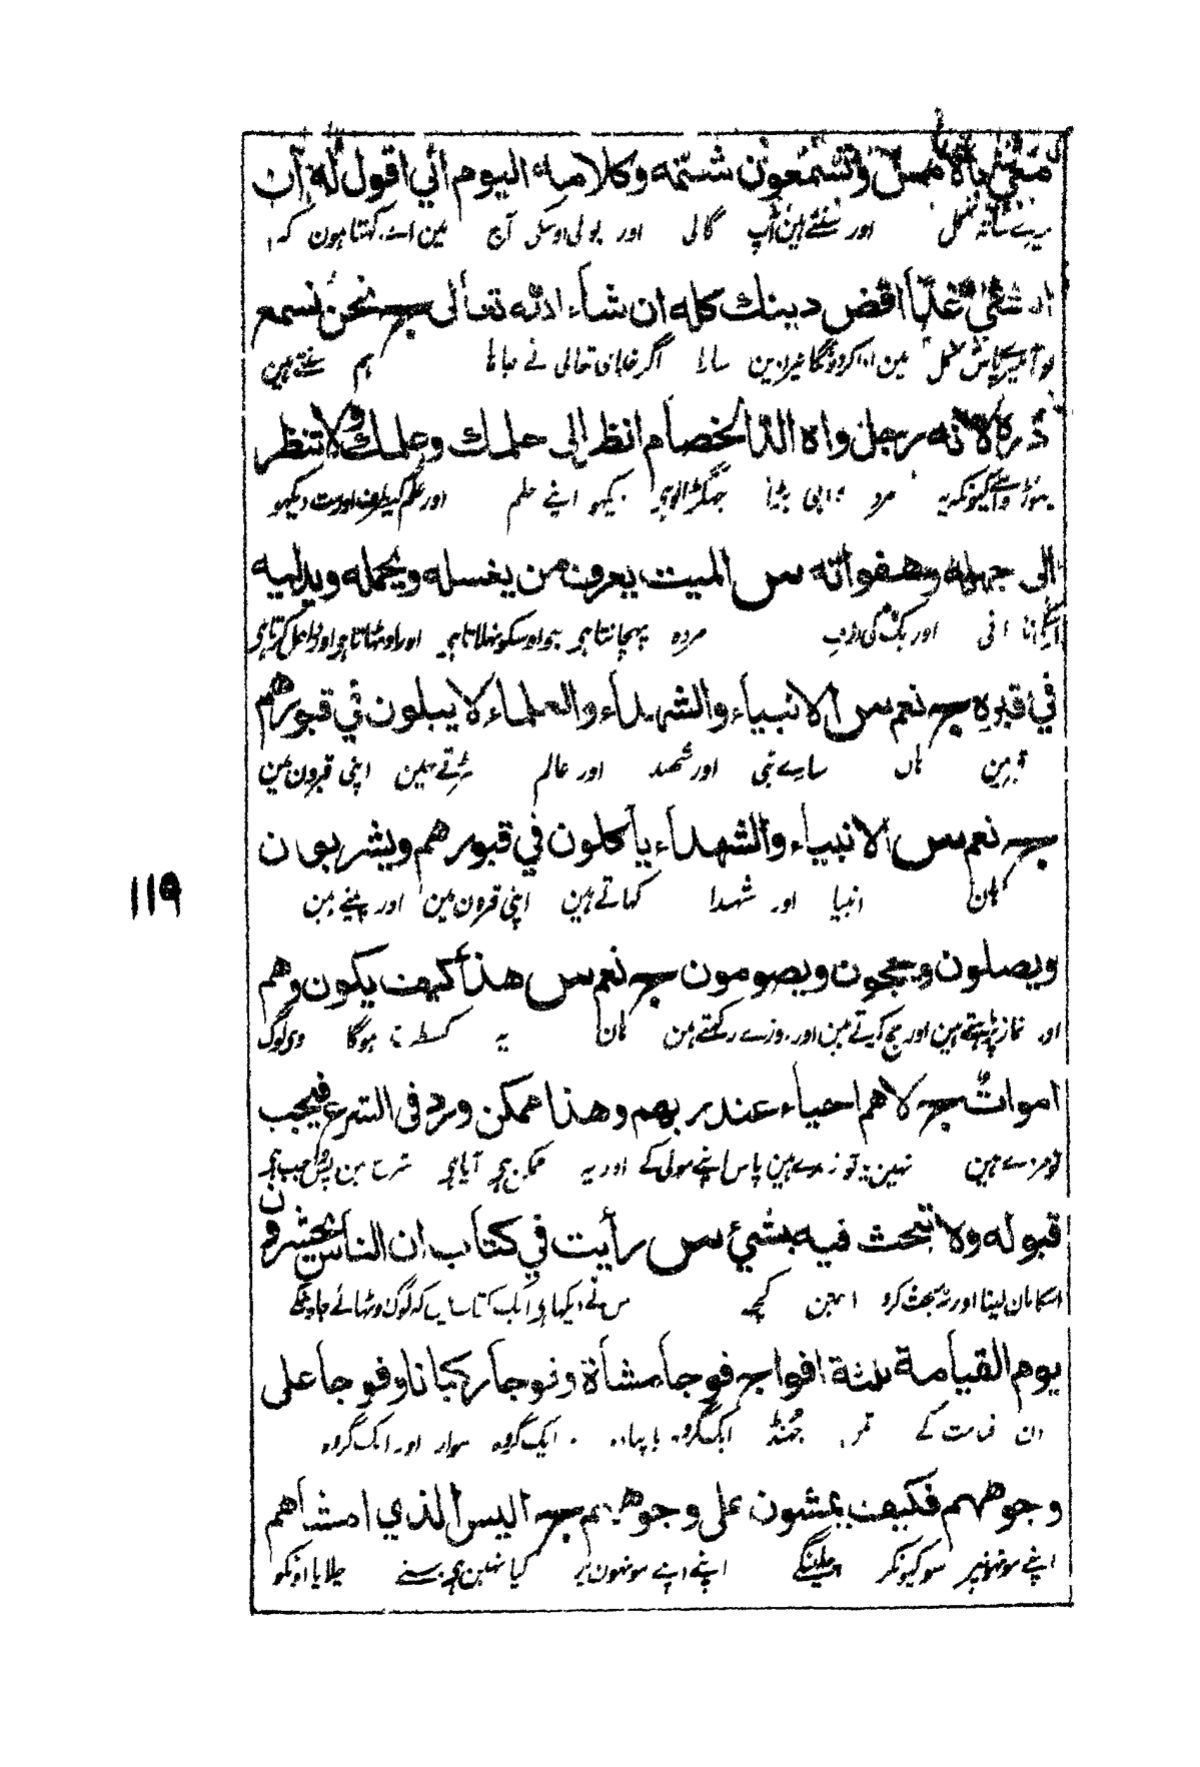 معي بالأمس وتسمعون شتمه وكلامه اليوم أني اقول له أن
اور سنتے ہین آپ گالی اور بولی اوسکی آج مین اسے کہتا ہون کہ
غدًا اقض دينك كله ان شاء الله تعالى جـ نحن نسمع
سارا اگر خدای تعالی نے چاہا ہم سنتے ہین
ذره لانه رجل واه الد الخصام انظر الى حلمك وعلمك ولا تنظر
مرد واہی بڑا جھگڑالو ہی دیکھو اپنے حلم اور علم کیطرف اور مت دیکھو
الى جهله وهفواته س الميت يعرف من يغسله ويحمله ويدليه
نادانی اور بک کی طرف مردہ پہچانتا ہی جو اوسکو نہلاتا ہی اور اوٹھاتا ہی اور داخل کرتا ہی
في قبره جـ نعم س الانبياء والشهداء والعلماء لا يبلون في قبورهم
قبر مین ہاں سارے نبی اور شہید اور عالم سڑتے ہین اپنی قبرون مین
جـ نعم س الانبياء والشهداء يأكلون في قبورهم ويشربون
ہان انبیا اور شہدا کھاتے ہین اپنی قبرون مین اور پیتے ہین
١١٩
ويصلون ويحجون ويصومون جـ نعم س هذا كيف يكون وهم
اور نماز پڑہتے ہین اور حج کرتے ہین اور روزے رکھتے ہین ہان یہ کسطرح ہوگا وی لوگ
اموات جـ لا هم احياء عند ربهم وهذا ممكن ورد في الشرع فيجب
تو مردے ہین نہین یہ تو زندے ہین پاس اپنے مولی کے اور یہ ممکن ہی آیا ہی شرع مین پس واجب ہی
قبوله ولا تبحث فيه بشئ س رأيت في كتاب ان الناس يحشرون
اسکا مان لینا اور نہ بحث کرو اسمین کچھ مین نے دیکھا ہی ایک کتاب مین کہ لوگ اوٹھائے جاینگے
يوم القيامة ثلثة افواج فوجا مشاة وفوجا ركبانا وفوجا على
دن قیامت کے تین جھنڈ ایک گروہ پیادہ ایک گروہ سوار اور ایک گروہ
وجوههم فكيف يمشون على وجوههم جـ اليس الذي امشاهم
اپنے مونہونپر سو کیونکر چلینگے اپنے اپنے مونہون پر کیا نہین ہی جسنے چلایا اونکو